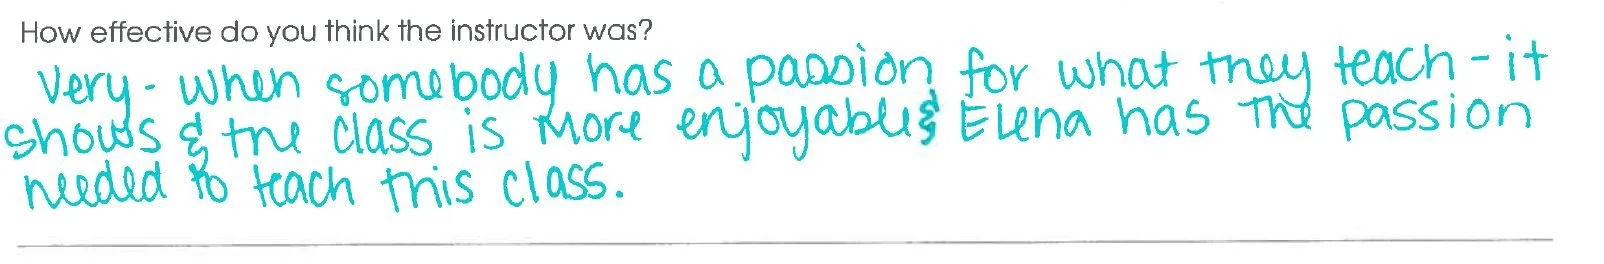 How effective do you think the instructor was?
Very - when somebody has a passion for what they teach - it
shows & the class is more enjoyable & Elena has the passion
needed to teach this class.